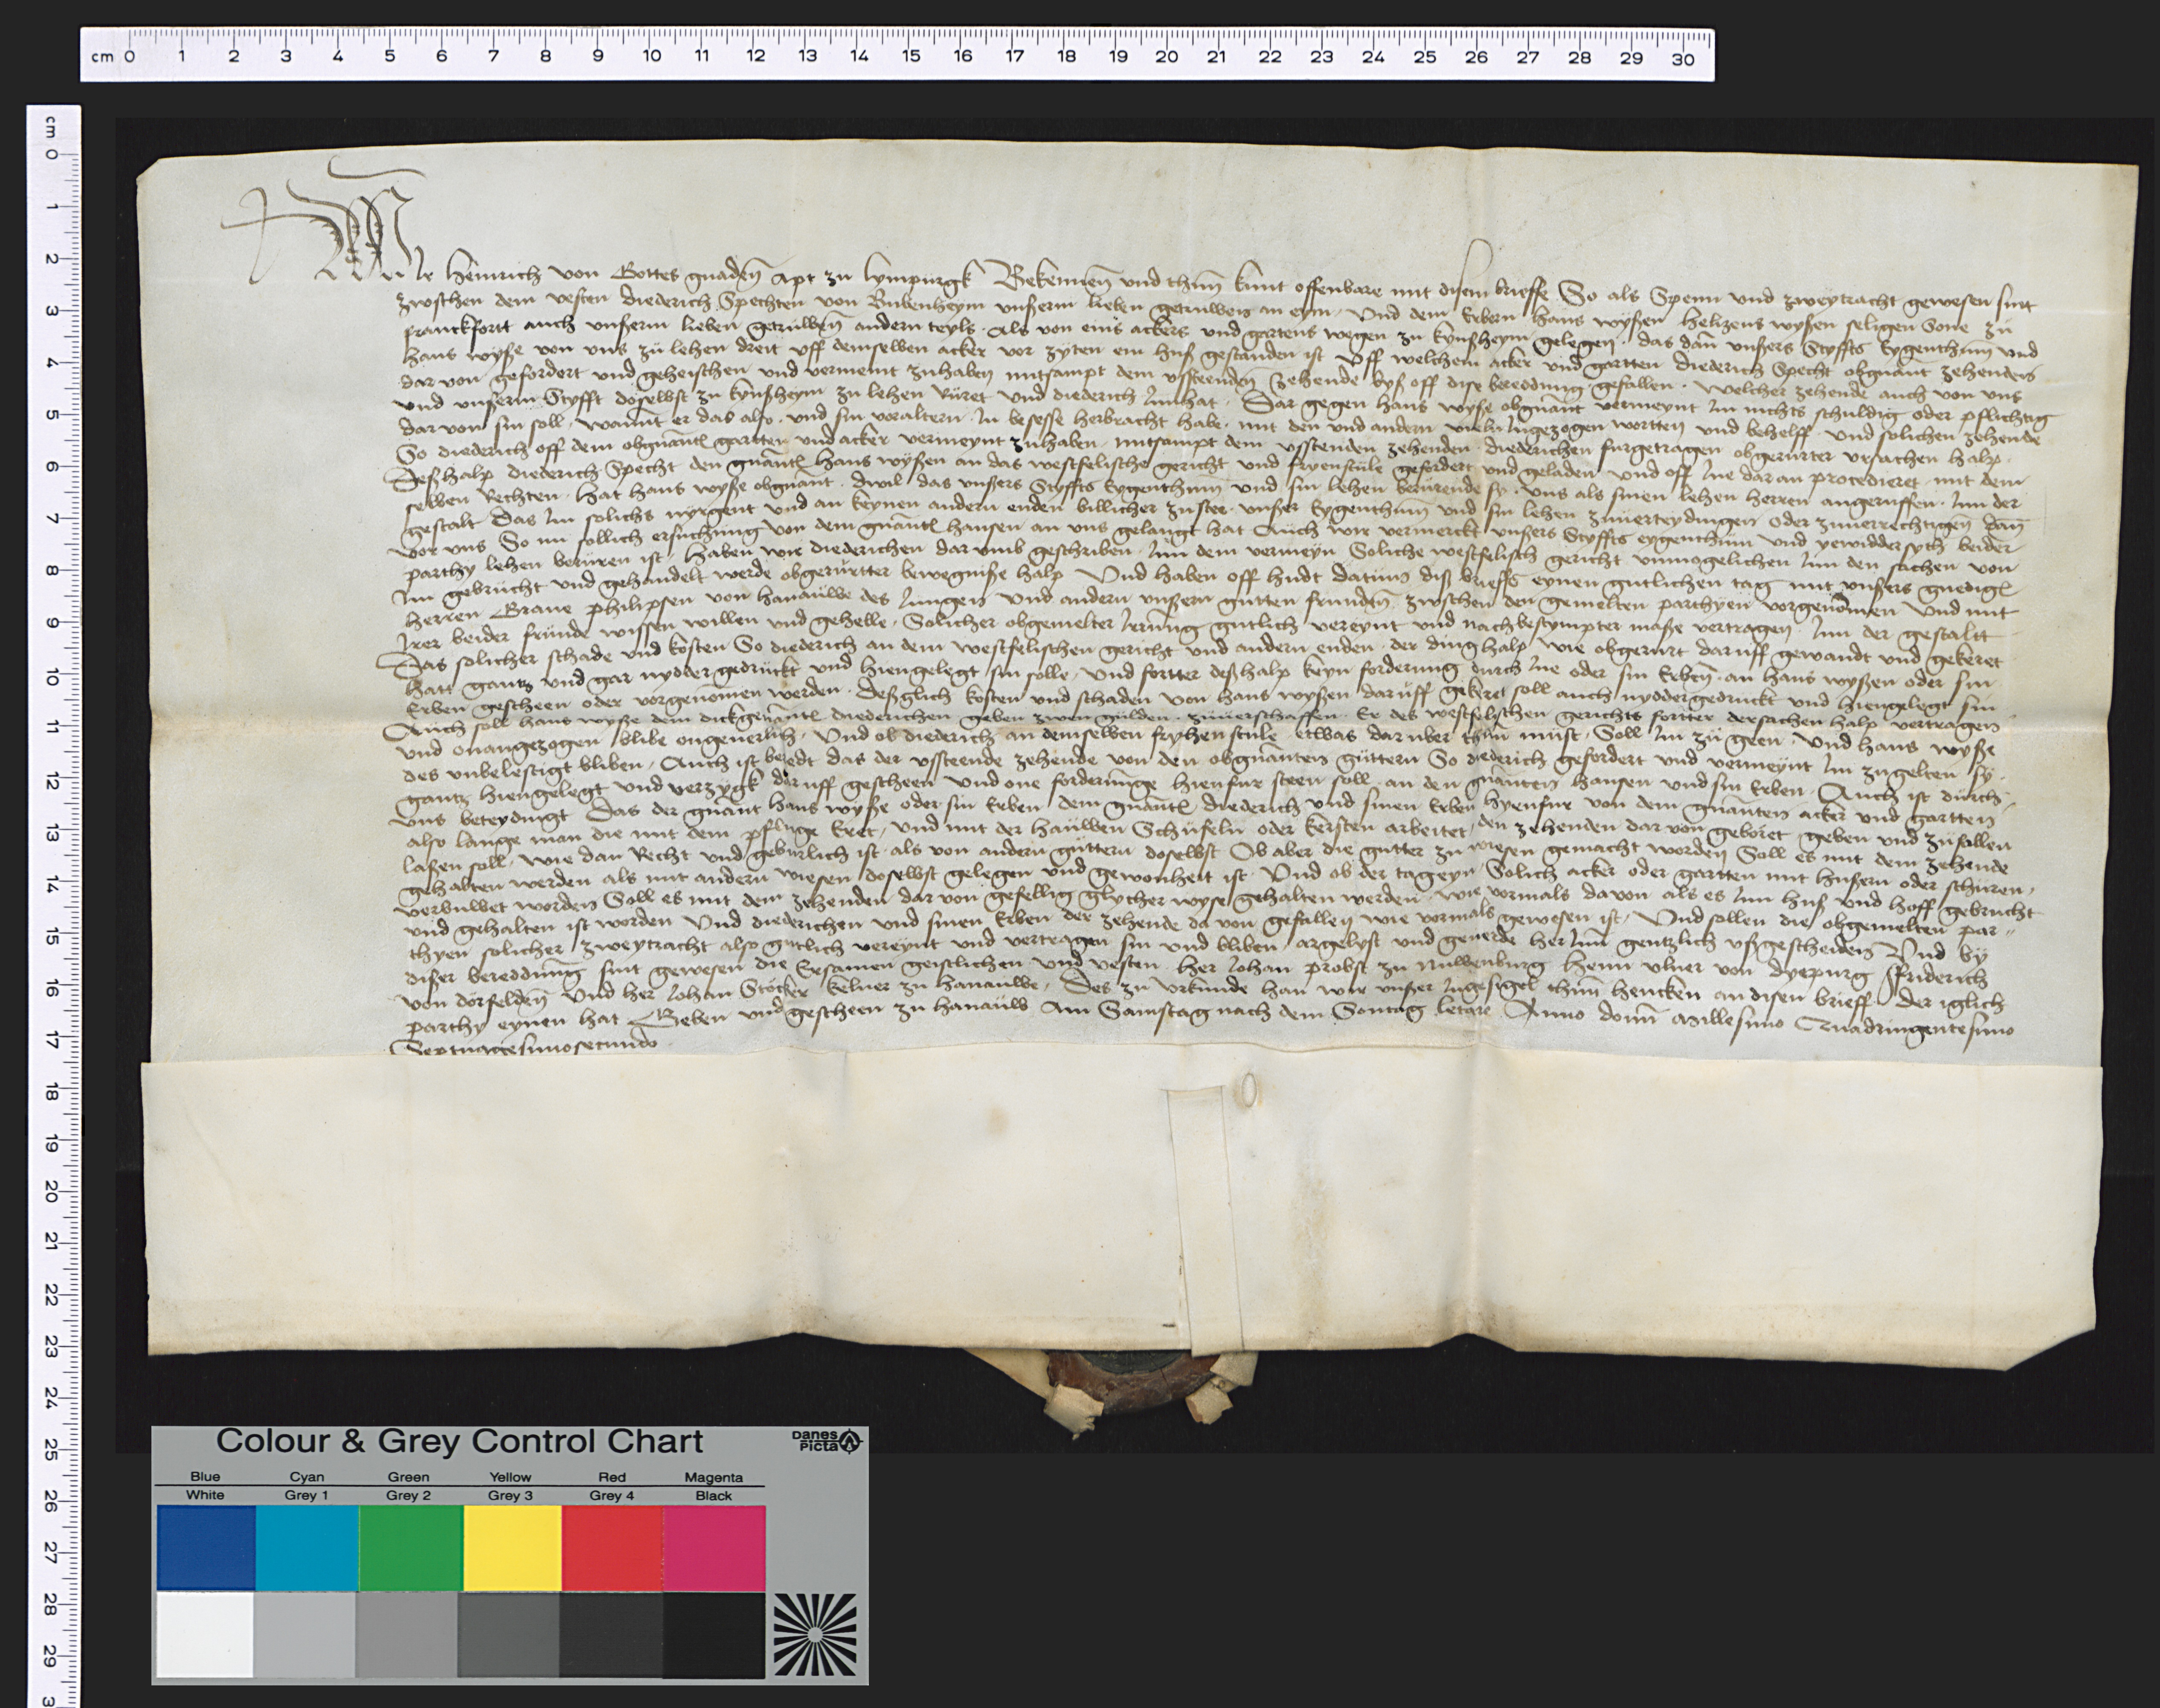 cm 0 1 2 3 4 5 6 7 8 9 10 11 12 13 14 15 16 17 18 19 20 21 22 23 24 25 26 27 28 29 30
cm 0 1 2 3 4 5 6 7 8 9 10 11 12 13 14 15 16 17 18 19 20 21 22 23 24 25 26 27 28 29 3
Wir Heinrich von Gottes gnaden Apt zu lympurgk Bekennen und thun kunt offenbare mit disem brieffe So als Spenn und zweytracht gewesen sint
zwschen dem vesten diederich Spechten von Bubenheym unßerm lieben getruwen an eym, Und dem Erbern Hans wyßen Heltzens wyßen seligen Sone zu
franckfortt auch unßerm lieben getruwen andern teyls, Als von eins ackers und gartens wegen zu kynßheym gelegen, das dan unßers Styffts Eygenthum und
Hans wyße von uns zu lehen dreit uff demselben acker vor zyten ein huß gestanden ist Uff welchem acker und gartten diederich Specht obgnant zehenden
dar von gefordert und geheischen und vermeint zuhaben mitsampt dem vssteenden zehende byß off dise beredung gefallen. welcher zehende auch von uns
und unßerm Styfft doselbst zu kynßheym zu lehen Ruret und diederich Inn hat. Dar gegen hans wyße obgnant vermeynt Im nichts schuldig oder pflichtig
dar von sin soll, wannt er das also, und sin voraltern In besesse herbracht habe, mit den und andern vieln Ingezogen wortten und behelff. und solichen zehende
So diederich off dem obgnantl gartten und acker vermeynt zuhaben mitsampt dem vsstenden zehenden diederichen furgetragen obgerurter ursachen halp.
Deßhalp diederich Specht den gnantl Hans wyßen an das westfelische gericht und fryenstule gefordert und geladen und off Ine dar an procedieret mit dem
selben Rechten. Hat hans wyße obgnant. dwil das unßers Styffts Eygenthum und sin lehen berurende sy. uns als sinen lehen herren angeruffen. Inn der
gestalt Das Im solichs nyrgent und an keynen andern enden billicher zustee unßer Eygenthum und sin lehen zuuerteydingen oder zuuerrechtigen dan
vor uns So nu sollich ersuchung von dem gnantl hansen an uns gelangt hat Auch wir vermerckt unßers Styffts eygenthum und yewidder syth beider
parthy lehen beruren ist, Haben wir diederichen dar umb geschriben. Inn dem vermeyn Soliche westfelisch gericht unmogelichen Inn den sachen von
Im gebrucht und gehandelt werde obgerurtter bewegniße halp Und haben off hudt datum diß brieffs eynen gutlichen tag mit unßers gnedigl
herren Graue philipsen von hanauwe des Jungen und andern unßern gutten frunden zwschen den gemelten parthyen vorgenomen Und mit
Irer beider frunde wissen willen und gehelle, Solicher obgemelter Irrung gutlich vereynt und nachbestympter maße vertragen. Inn der gestaltt
Das solicher schade und kosten So diederich an dem westfelischen gericht und andern enden, der ding halp wie obgerurt daruff gewandt und gekeret
hatt gantz und gar nydder gedruckt und hiengelegt sin solle, Und fortter deßhalp keyn forderung durch Ine oder sin Erben an hans wyßen oder sin
Erben gescheen oder vorgenomen werden. deßglich kosten und schaden von hans wyßen daruff gekeret soll auch nyddergedruckt und hiengelegt sin
Auch soll hans wyße dem dickgenantl diederichen geben zwen gulden. zuuerschaffen Er des westfelischen gerichts fortter dersachen halp vertragen
und onangezogen blibe ongeuerlich, Und ob diederich an demselben fryhen stule etwas dar uber thun must, Soll Im zu geen. Und hans wyße
des unbelestigt bliben, Auch ist beredt das der vssteende zehende von den obgnanten guttern So diederich gefordert und vermeynt Im zugelten sy
gantz hiengelegt und verzygk dar uff gescheen und one forderunge hienfur steen soll an den gnanten hansen und sin Erben. Auch ist durch
uns beteydingt Das der gnant hans wyße oder sin Erben dem gnantl diederich und sinen Erben hyenfur von dem gnanten acker und gartten
also lange man die mit dem pfluge Eret, und mit der hauwen Schufeln oder kersten arbeitet, den zehenden dar von geboret geben und zufallen
laßen soll, wie dan Recht und geburlich ist als von andern guttern doselbst Ob aber die gutter zu wiesen gemacht worden Soll es mit dem zehende
gehalten werden als mit andern wiesen doselbst gelegen und gewonheit ist. Und ob der tageyn Solich acker oder gartten mit hußern oder schuren
verbuwet worden Soll es mit dem zehenden dar von gefellig glycher wyse gehalten werden. wie vormals davon als es Inn huß und hoff gebrucht
und gehalten ist worden Und diederichen und sinen Erben der zehende da von gefallen wie vormals gewesen ist, Und sollen die obgemelten par-
thyen solicher zweytracht also gutlich vereynt und vertragen sin und bliben argelyst und geuerde her Inn gentzlich vßgescheiden Und by
dißer bereddung sint gewesen die Ersamen geistlichen und vesten Her Johan probst zu Nuwenburg Henn ulner von dyepurg Friderich
von dorfelden Und her Johan Stocker kelner zu hanauwe, Des zu urkunde han wir unßer Ingesigel thun hencken an disen brieff der iglich
parthy eynen hat Geben und gescheen zu hanauw Am Samstag nach dem Sontag letare Anno domini Millesimo Quadringentesimo
Septuagesimosecundo
Colour & Grey Control Chart
Danes Picta
Blue Cyan Green Yellow Red Magenta
White Grey 1 Grey 2 Grey 3 Grey 4 Black